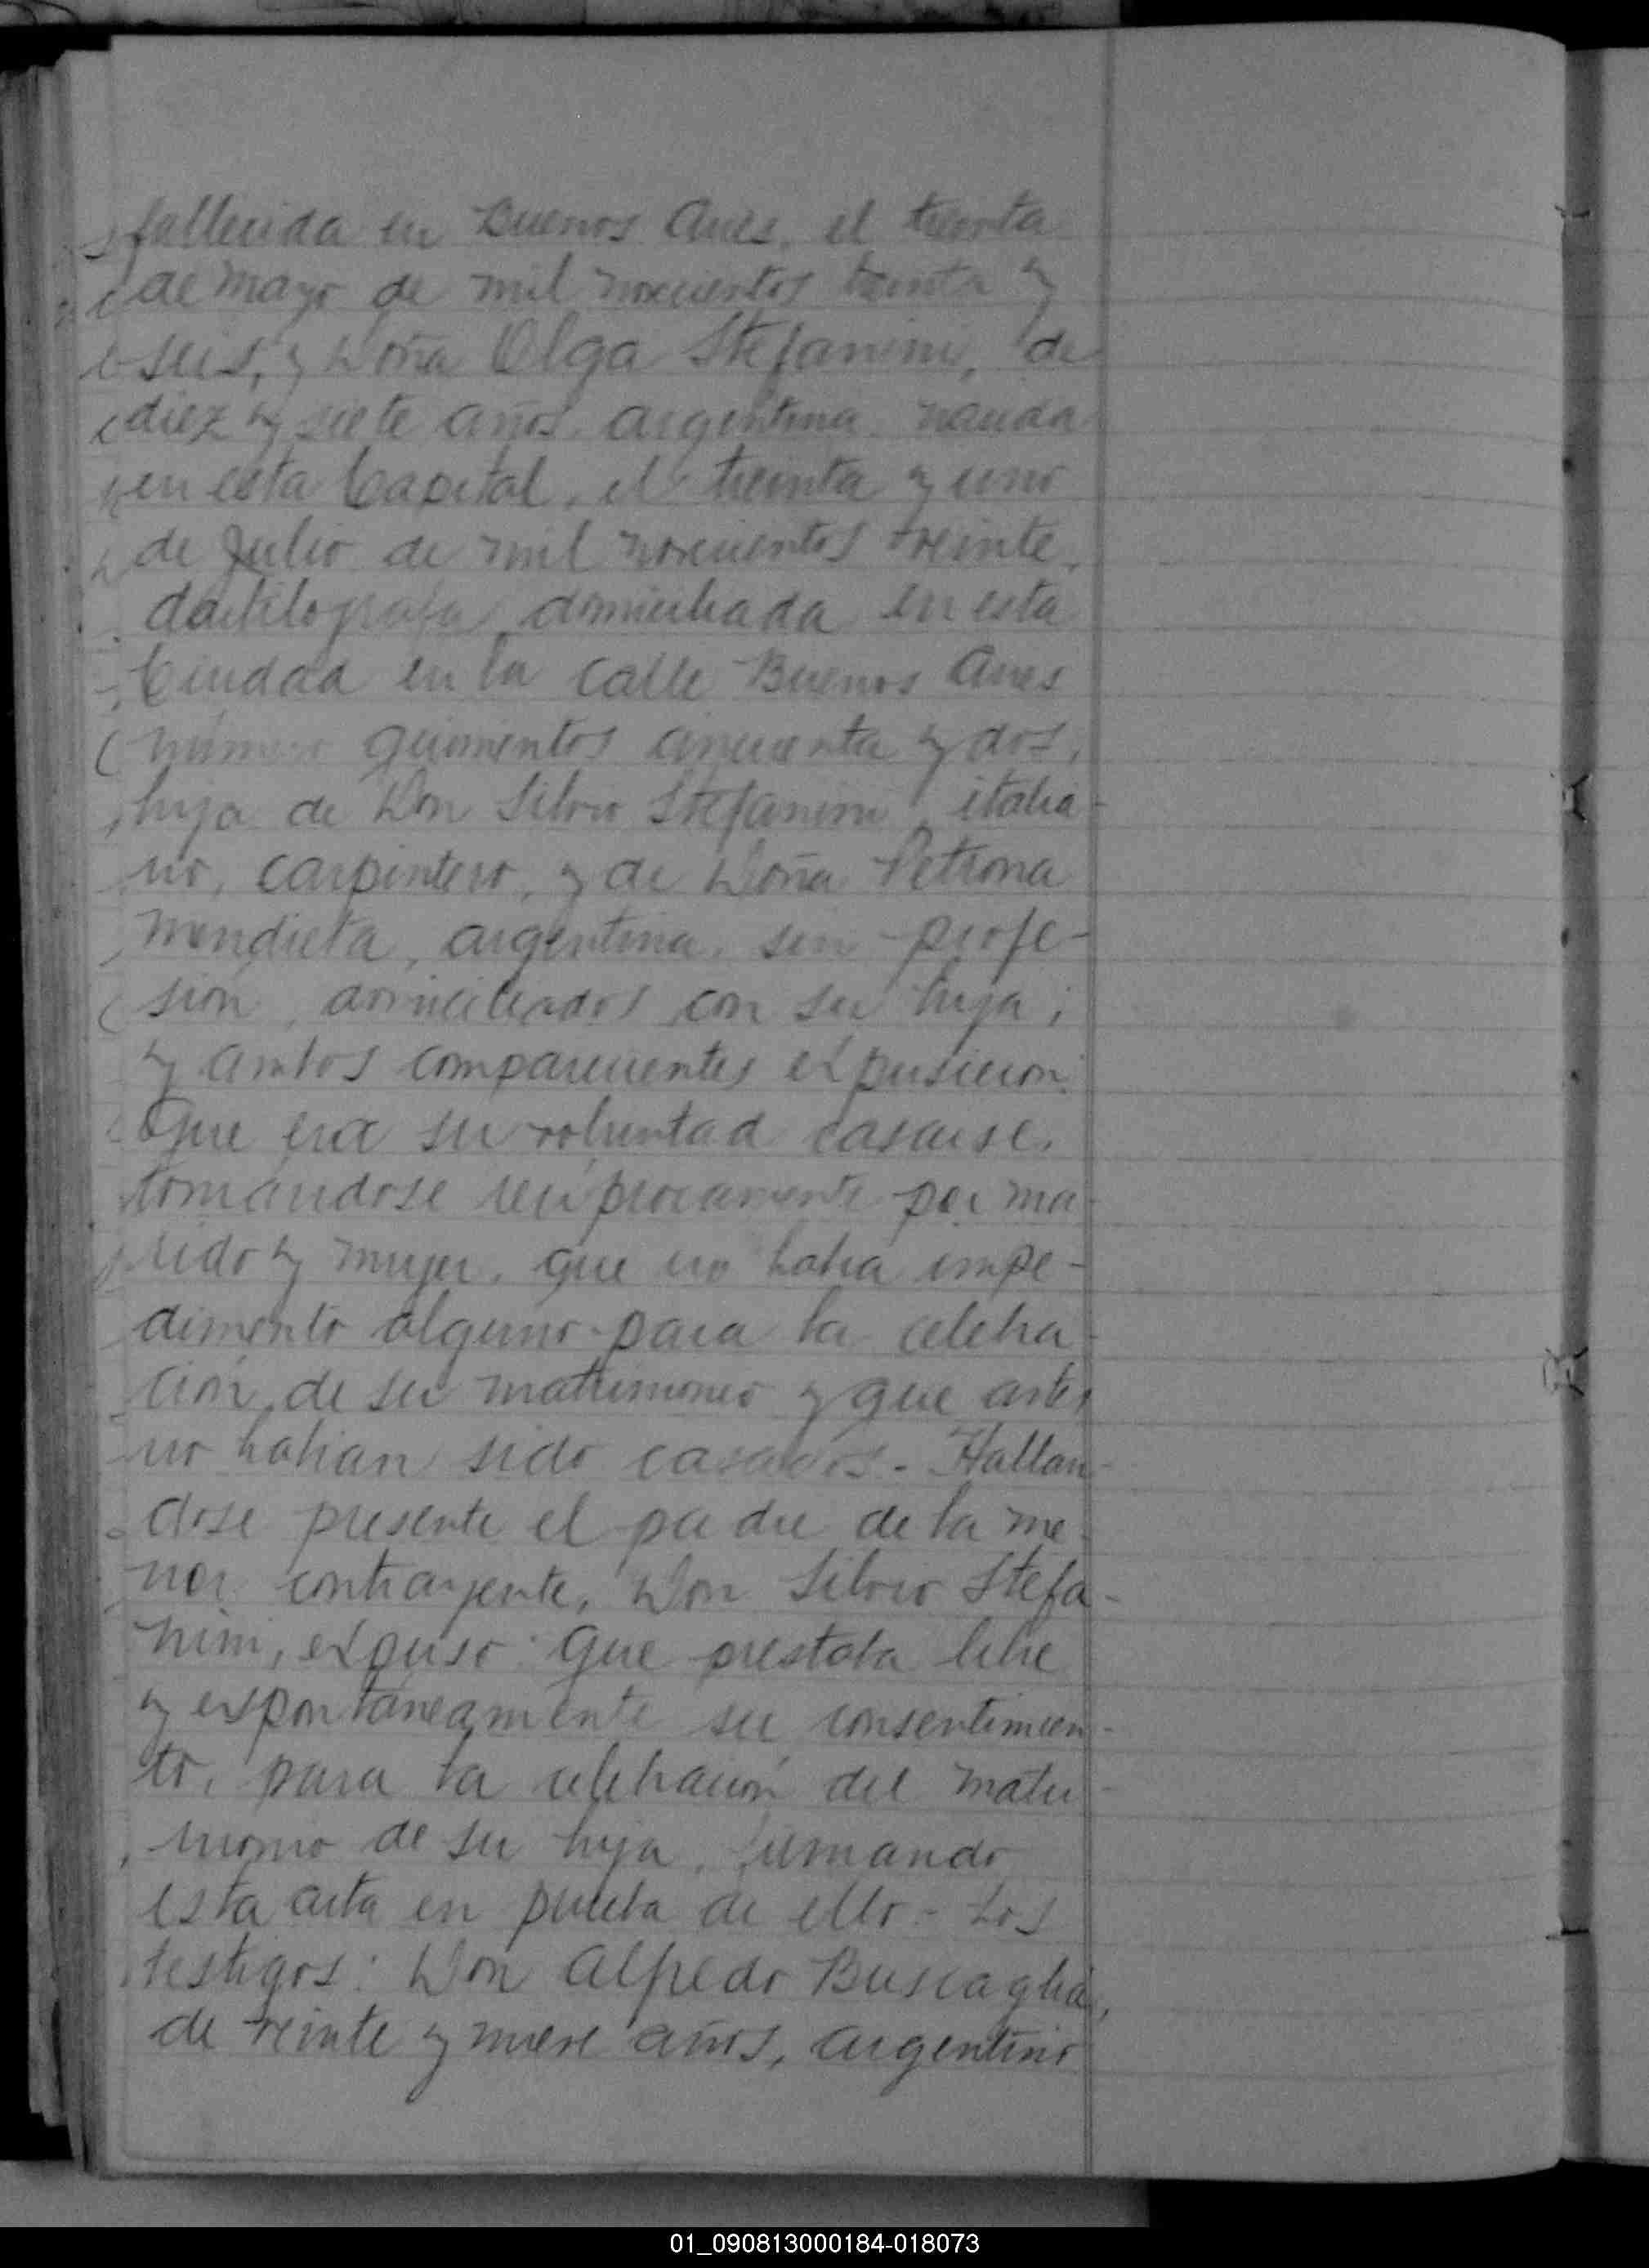 fallecida en Buenos Aires, el treinta
de mayo de mil novecientos treinta y
seis, y Doña Olga Stefanini, de
diez y siete años, argentina, nacida
en esta Capital, el treinta y uno
de Julio de mil novecientos veinte,
dactilografa, domiciliada en esta
Ciudad en la calle Buenos Aires
número quinientos cincuenta y dos,
hija de Don Silvio Stefanini, italia-
no, carpintero, y de Doña Petrona
Mendieta, argentina, sin profe-
sión, domiciliados con su hija;
y ambos comparecientes expusieron:
Que era su voluntad casarse,
tomándose recíprocamente por ma-
rido y mujer, que no había impe-
dimento alguno para la celebra-
ción de su matrimonio y que antes
no habían sido casados.- Hallan-
dose presente el padre de la me-
nor contrayente, Don Silvio Stefa-
nini, expuso: Que prestaba libre
y espontáneamente su consentimien-
to, para la celebración del matri-
monio de su hija, firmando
esta acta en prueba de ello.- Los
testigos: Don Alfredo Buscaglia,
de veinte y nueve años, argentino
01_090813000184-018073